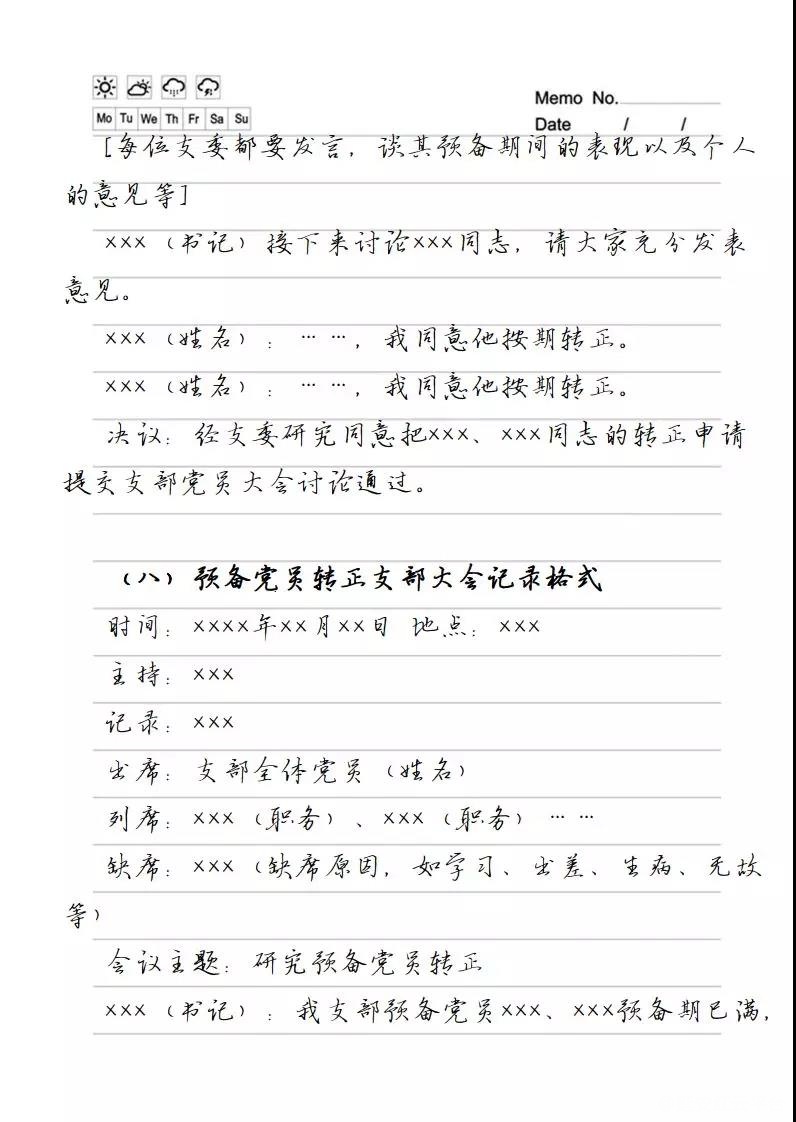 Memo No.
Mo Tu We Th Fr Sa Su
Date / /
[每位支委都要发言，谈其预备期间的表现以及个人
的意见等]
×××（书记）接下来讨论×××同志，请大家充分发表
意见。
×××（姓名）：……，我同意他按期转正。
×××（姓名）：……，我同意他按期转正。
决议：经支委研究同意把×××、×××同志的转正申请
提交支部党员大会讨论通过。
（八）预备党员转正支部大会记录格式
时间：××××年××月××日 地点：×××
主持：×××
记录：×××
出席：支部全体党员（姓名）
列席：×××（职务）、×××（职务）……
缺席：×××（缺席原因，如学习、出差、生病、无故
等）
会议主题：研究预备党员转正
×××（书记）：我支部预备党员×××、×××预备期已满，